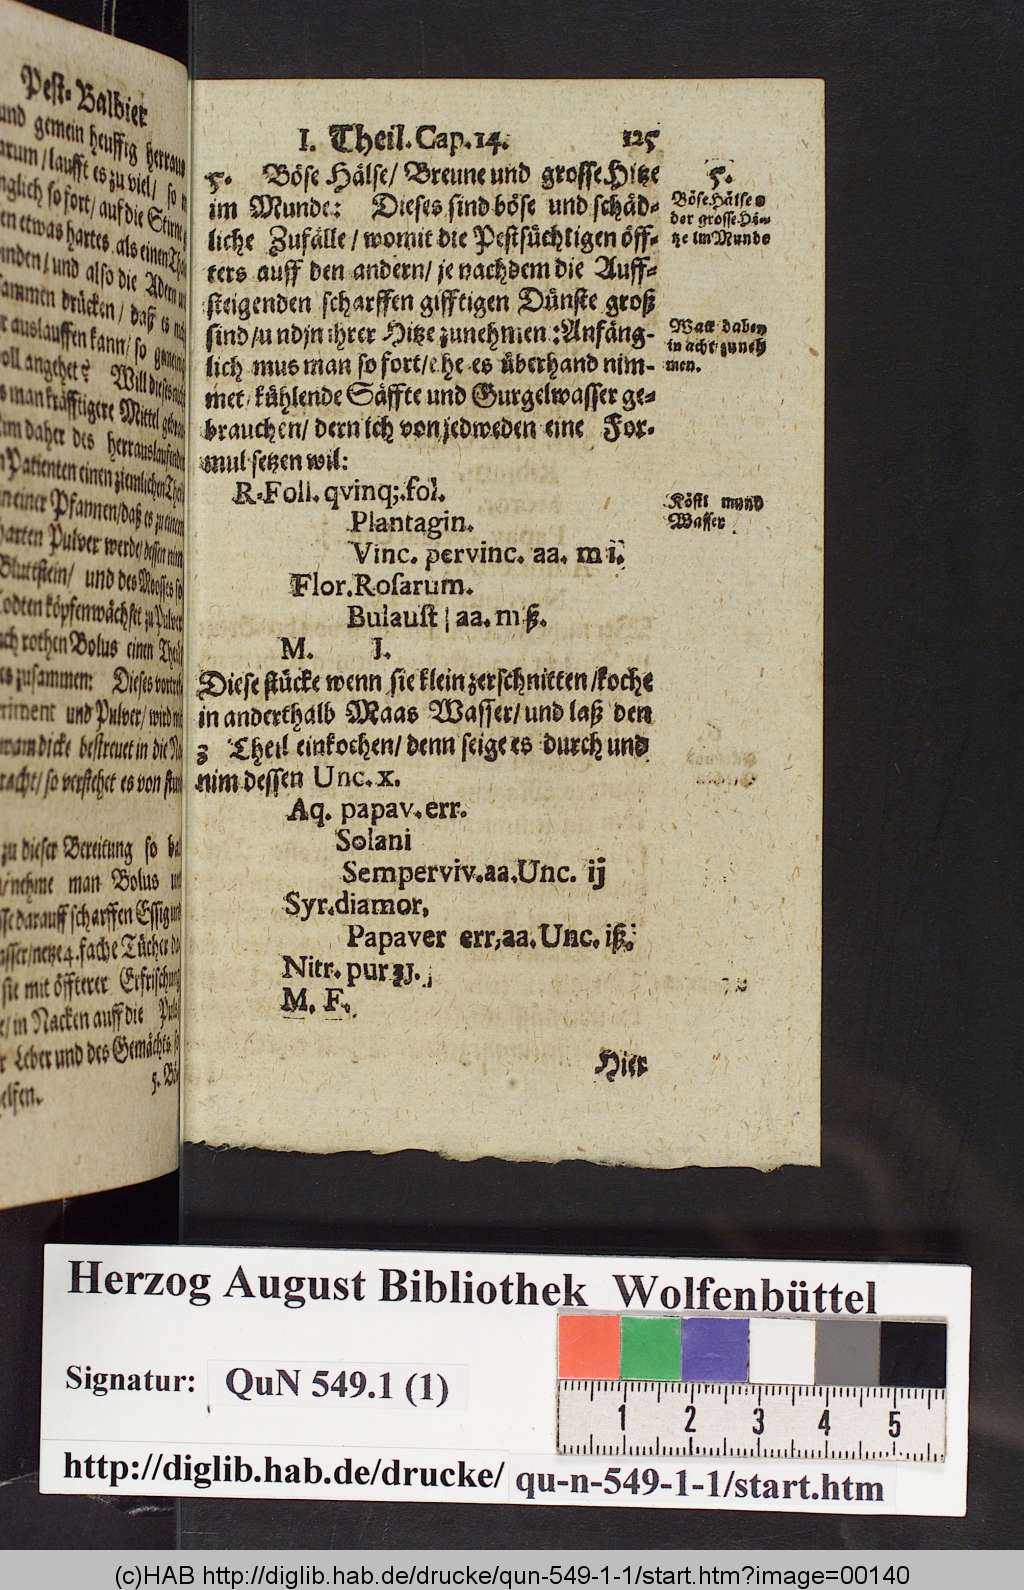 Pest-Balbier
und gemein heuffig herraus
arum/laufft es zu viel/ so
nglich so fort/ auf die Stirne
en etwas hartes als einen
inden/ und also die Adern
ammen drücken/ daß es
r auslauffen kann/ so
oll angehet? Will dieses nicht
s man kräfftigere Mittel
im daher des herrauslauffenden
Patienten einen ziemlichen Theil
n einer Pfannen/ daß es zu einem
harten Pulver werde/ dessen nim
Bluttstein/ und des Mooßes so
Todten köpfen wächset zu Pulver
ch rothen Bolus einen Theil
es zusammen: Dieses
riment und Pulver/ wird mit
dicke bestreuet in die
racht/ so verstehet es von
zu dieser Bereitung so
/nehme man Bolus
sse darauff scharffen Essig und
asser/netze 4. fache Tücher
sie mit öffterer Erfrischung
e/ in Nacken auff die
r Leber und des Gemächts
elfen.
5. Bö
I. Theil. Cap. 14. 125
5. Böse Hälse/ Breune und grosse Hitze
im Munde: Dieses sind böse und schäd-
liche Zufälle/ womit die Pestsüchtigen öff-
ters auff den andern/ je nachdem die Auff-
steigenden scharffen gifftigen Dünste groß
sind/und in ihrer Hitze zunehmen: Anfäng-
lich mus man so fort/ehe es überhand nim-
met/ kühlende Säffte und Gurgelwasser ge-
brauchen/ dern ich von jedweden eine For-
mul setzen wil:
R. Foll. qvinq;. fol.
Plantagin.
Vinc. pervinc. aa. m i.
Flor. Rosarum.
Bulaust | aa. mß.
M. I.
Diese stücke wenn sie klein zerschnitten/koche
in anderthalb Maas Wasser/ und laß den
3 Theil einkochen/ denn seige es durch und
nim dessen Unc. x.
Aq. papav. err.
Solani
Semperviv. aa. Unc. ij
Syr. diamor,
Papaver err, aa. Unc. iß.
Nitr. pur ʒj.
M. F.
Hier
5.
Böse Hälse o
der grosse Hi-
tze im Munde
Watt dabey
in acht zuneh
men.
Köstl mund
Wasser
Herzog August Bibliothek Wolfenbüttel
Signatur: QuN 549.1 (1)
1 2 3 4 5
http://diglib.hab.de/drucke/ qu-n-549-1-1/start.htm
(c)HAB http://diglib.hab.de/drucke/qun-549-1-1/start.htm?image=00140